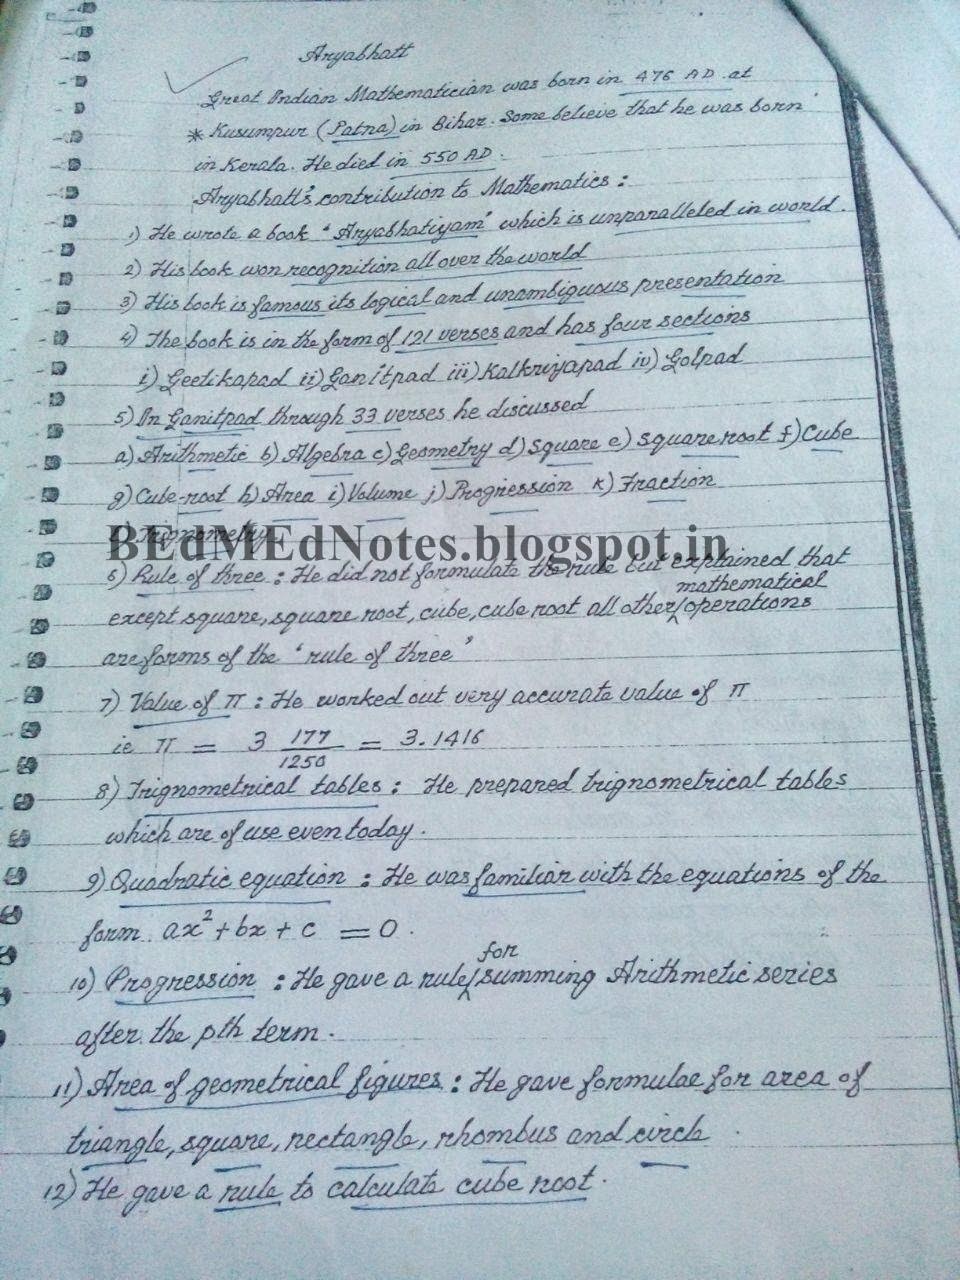 Aryabhatt
Great Indian Mathematician was born in 476 AD. at
* Kusumpur (Patna) in Bihar. Some believe that he was born
in Kerala. He died in 550 AD.
Aryabhatt's contribution to Mathematics:
1) He wrote a book "Aryabhatiyam" which is unparalleled in world.
2) His book won recognition all over the world
3) His book is famous its logical and unambiguous presentation
4) The book is in the form of 121 verses and has four sections
i) Geetikapad ii) Ganitpad iii) Kalkriyapad iv) Golpad
5) In Ganitpad through 33 verses he discussed
a) Arithmetic b) Algebra c) Geometry d) Square e) Square root f) Cube
g) Cube-root h) Area i) Volume j) Progression k) Fraction
l) Trignometry
BEdMEdNotes.blogspot.in
6) Rule of three : He did not formulate the rule but explained that
except square, square root, cube, cube root all other mathematical operations
are forms of the 'rule of three'
7) Value of π : He worked out very accurate value of π
ie π = 3 177/1250 = 3.1416
8) Trignometrical tables : He prepared trignometrical tables
which are of use even today.
9) Quadratic equation : He was familiar with the equations of the
form. ax² + bx + c = 0.
10) Progression : He gave a rule for summing Arithmetic series
after the pth term.
11) Area of geometrical figures : He gave formulae for area of
triangle, square, rectangle, rhombus and circle.
12) He gave a rule to calculate cube root.